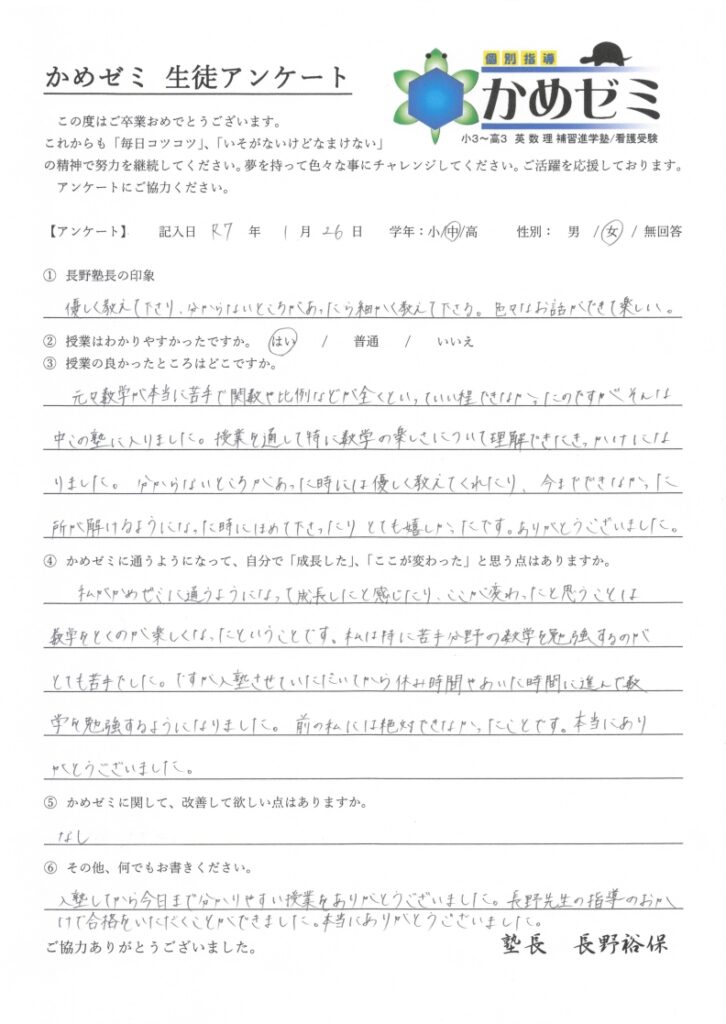 かめゼミ 生徒アンケート
個別指導
かめゼミ
小3～高3 英 数 理 補習進学塾/看護受験
この度はご卒業おめでとうございます。
これからも「毎日コツコツ」、「いそがないけどなまけない」
の精神で努力を継続してください。夢を持って色々な事にチャレンジしてください。ご活躍を応援しております。
アンケートにご協力ください。
【アンケート】 記入日 R7 年 1 月 26 日 学年：小/中/高 性別： 男 / 女 / 無回答
① 長野塾長の印象
優しく教えて下さり、分からないところがあったら細かく教えて下さる。色々なお話ができて楽しい。
② 授業はわかりやすかったですか。 はい / 普通 / いいえ
③ 授業の良かったところはどこですか。
元々数学が本当に苦手で関数や比例などが全くといっていい程できなかったのですがそんな
中この塾に入りました。授業を通して特に数学の楽しさについて理解できたきっかけにな
りました。分からないところがあった時には優しく教えてくれたり、今までできなかった
所が解けるようになった時にほめて下さったりとても嬉しかったです。ありがとうございました。
④ かめゼミに通うようになって、自分で「成長した」、「ここが変わった」と思う点はありますか。
私がかめゼミに通うようになって成長したと感じたり、ここが変わったと思うことは
数学をとくのが楽しくなったということです。私は特に苦手分野の数学を勉強するのが
とても苦手でした。ですが入塾させていただいてから休み時間やあいた時間に進んで数
学を勉強するようになりました。前の私には絶対できなかったことです。本当にあり
がとうございました。
⑤ かめゼミに関して、改善して欲しい点はありますか。
なし
⑥ その他、何でもお書きください。
入塾してから今日まで分かりやすい授業をありがとうございました。長野先生の指導のおか
げで合格をいただくことができました。本当にありがとうございました。
ご協力ありがとうございました。
塾長 長野裕保